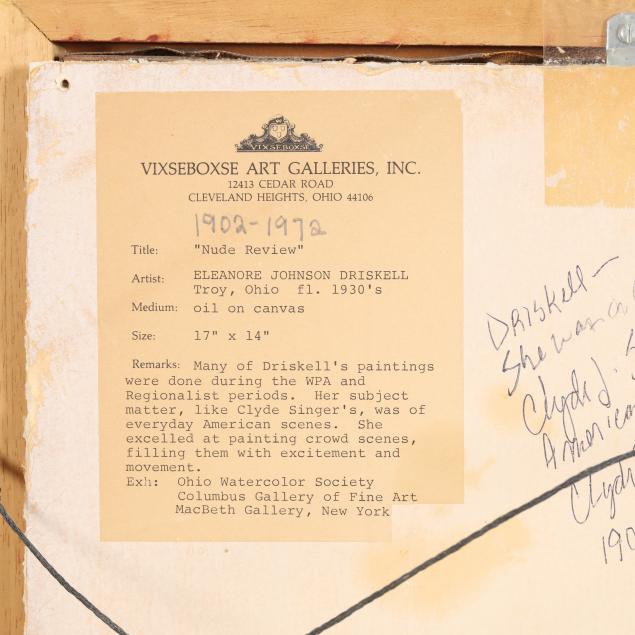 VIXSEBOXSE
VIXSEBOXSE ART GALLERIES, INC.
12413 CEDAR ROAD
CLEVELAND HEIGHTS, OHIO 44106
1902-1972
Title: "Nude Review"
Artist: ELEANORE JOHNSON DRISKELL
Troy, Ohio fl. 1930's
Medium: oil on canvas
Size: 17" x 14"
Remarks: Many of Driskell's paintings
were done during the WPA and
Regionalist periods. Her subject
matter, like Clyde Singer's, was of
everyday American scenes. She
excelled at painting crowd scenes,
filling them with excitement and
movement.
Exh: Ohio Watercolor Society
Columbus Gallery of Fine Art
MacBeth Gallery, New York
Driskell—
She was
Clyde
American
Clyde
190